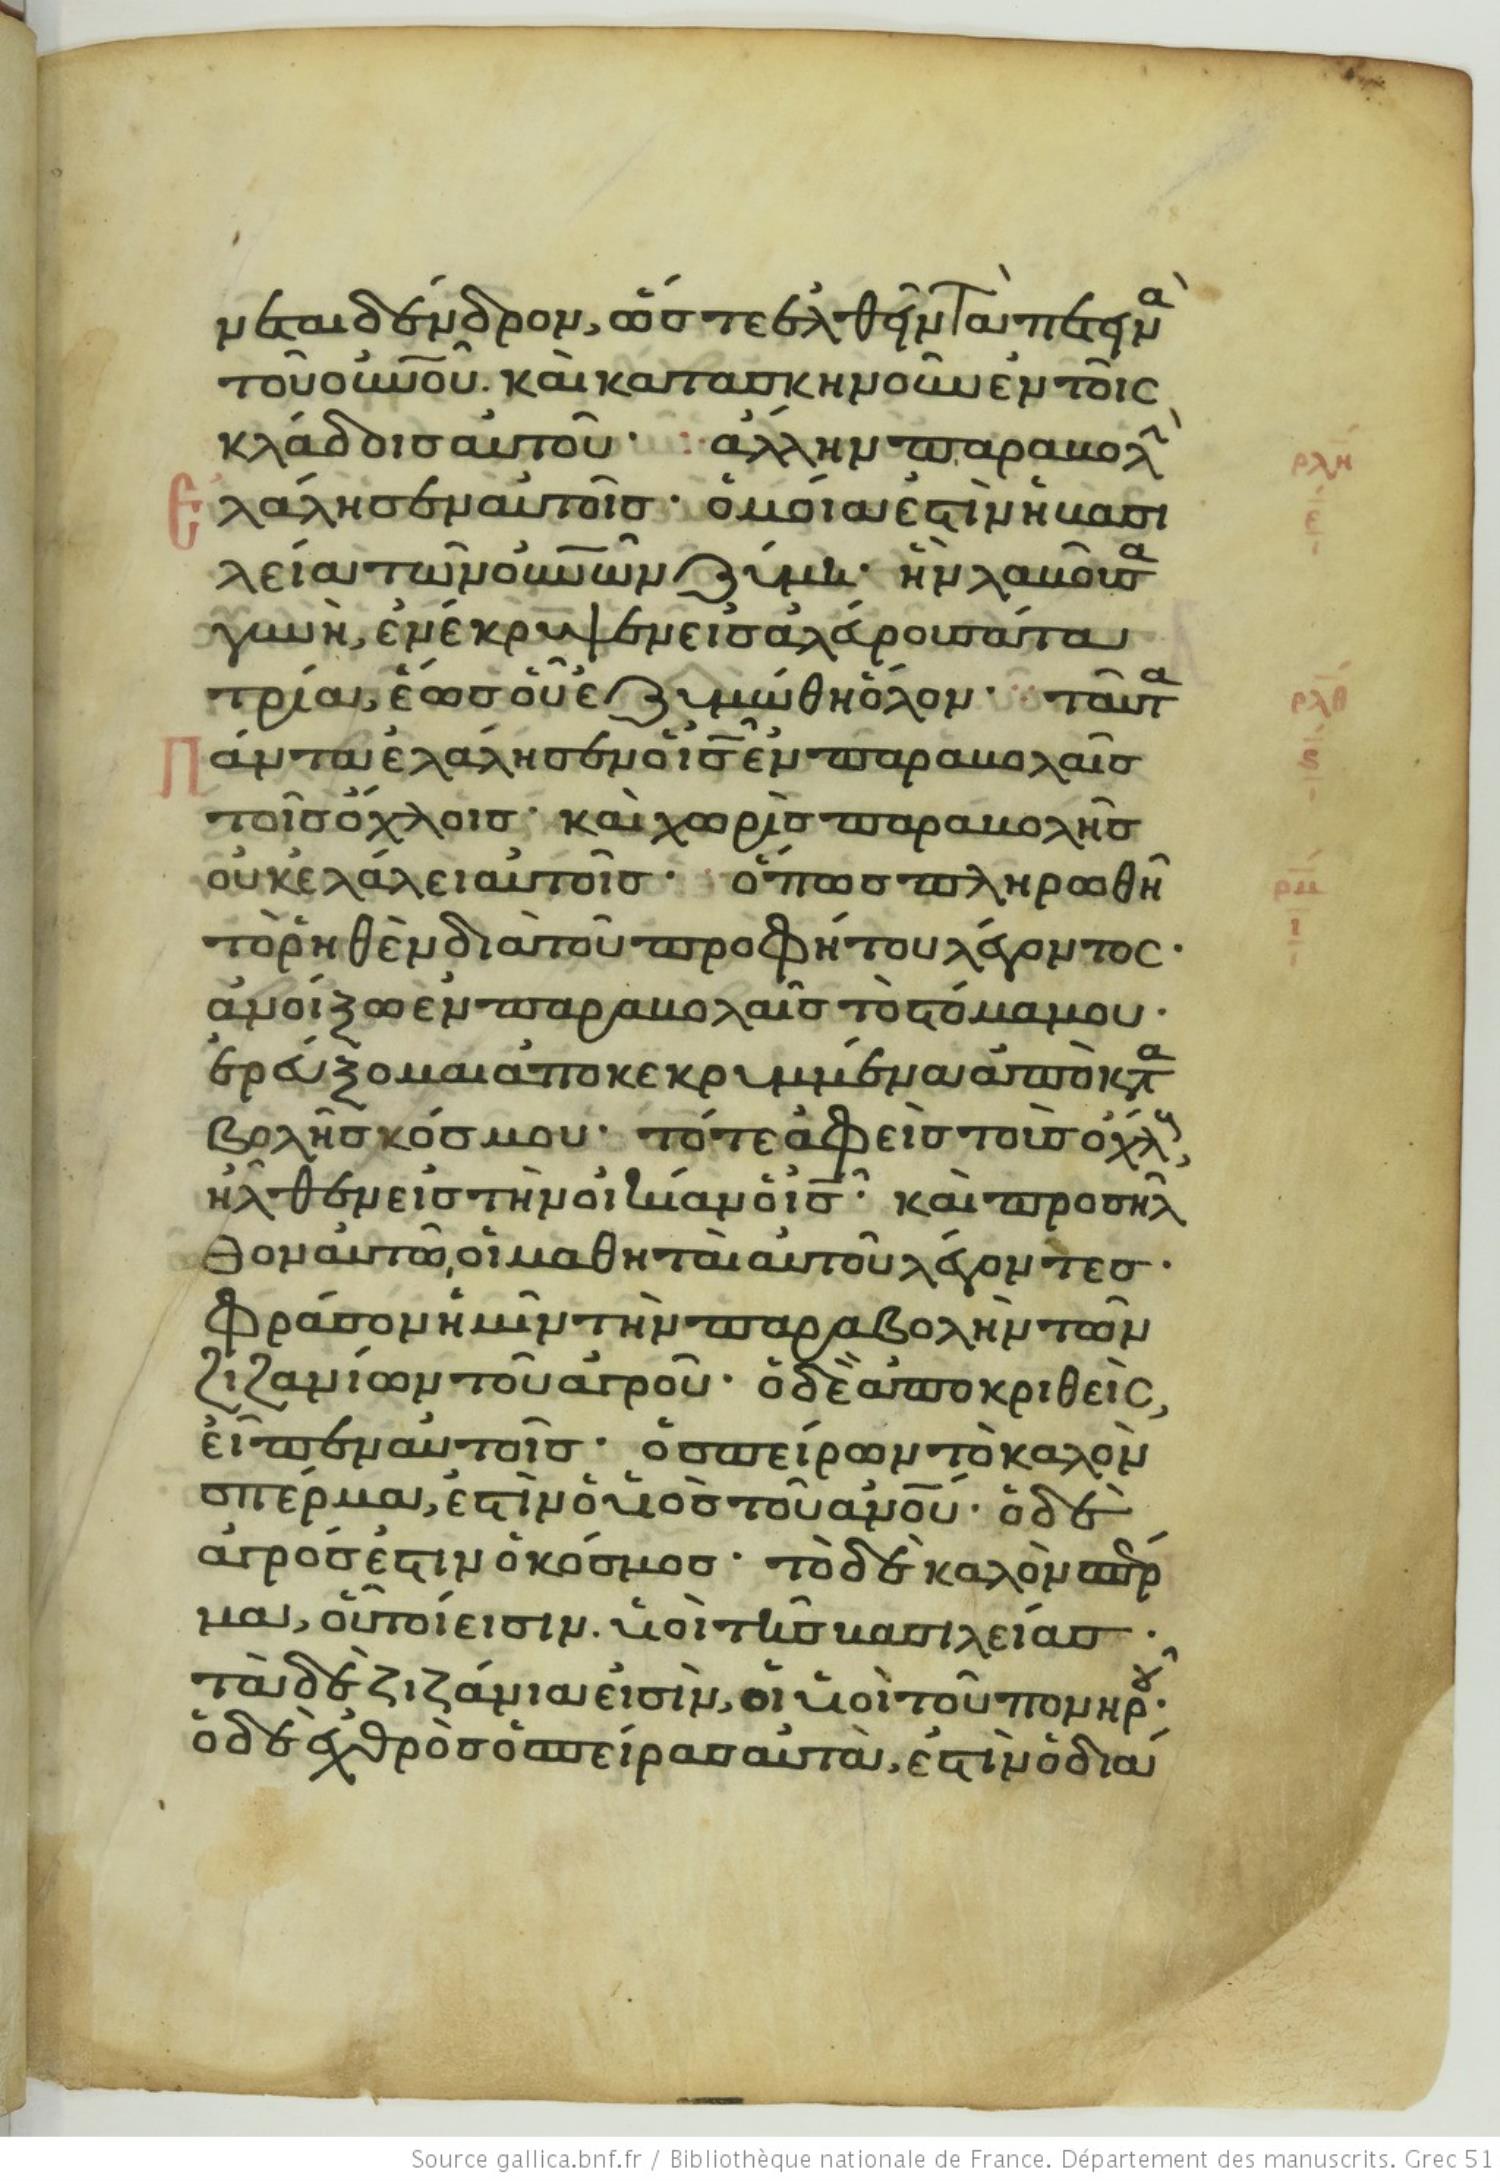 νεται δένδρον, ὥστε ἐλθεῖν τὰ πετεινὰ
τοῦ οὐνοῦ. καὶ κατασκηνοῦν ἐν τοῖς
κλάδοις αὐτοῦ· ἄλλην παραβολὴν
ἐλάλησεν αὐτοῖς· ὁμοία ἐστὶν ἡ βασι
λεία τῶν οὐνῶν ζύμη· ἣν λαβοῦσα
γυνὴ, ἐνέκρυψεν εἰς ἀλεύρου σάτα
τρία, ἕως οὗ ἐζυμώθη ὅλον· ταῦτα
πάντα ἐλάλησεν ὁ ις ἐν παραβολαῖς
τοῖς ὄχλοις· καὶ χωρὶς παραβολῆς
οὐκ ἐλάλει αὐτοῖς· ὅπως πληρωθῆ
τὸ ῥηθὲν διὰ τοῦ προφήτου λέγοντος·
ἀνοίξω ἐν παραβολαῖς τὸ στόμα μου·
ἐρεύξομαι ἀποκεκρυμμένα ἀπὸ κατα
βολῆς κόσμου· τότε ἀφεὶς τοὺς ὄχλους,
ἦλθεν εἰς τὴν οἰκίαν ὁ ις· καὶ προσῆλ
θον αὐτῶ, οἱ μαθηταὶ αὐτοῦ λέγοντες·
φράσον ἡμῖν τὴν παραβολὴν τῶν
ζιζανίων τοῦ ἀγροῦ· ὁ δὲ ἀποκριθεὶς,
εἶπεν αὐτοῖς· ὁ σπείρων τὸ καλὸν
σπέρμα, ἐστὶν ὁ υἱὸς τοῦ ἀνοῦ· ὁ δὲ
ἀγρός ἐστιν ὁ κόσμος· τὸ δὲ καλὸν σπέρ
μα, οὗτοί εἰσιν. υἱοὶ τῆς βασιλείας·
τὰ δὲ ζιζάνια εἰσὶν, οἱ υἱοὶ τοῦ πονηροῦ·
ὁ δὲ ἐχθρὸς ὁ σπείρας αὐτὰ, ἐστὶν ὁ διά
ρλη
ε
ρλθ
ς
ρμ
ι
Source gallica.bnf.fr / Bibliothèque nationale de France. Département des manuscrits. Grec 51